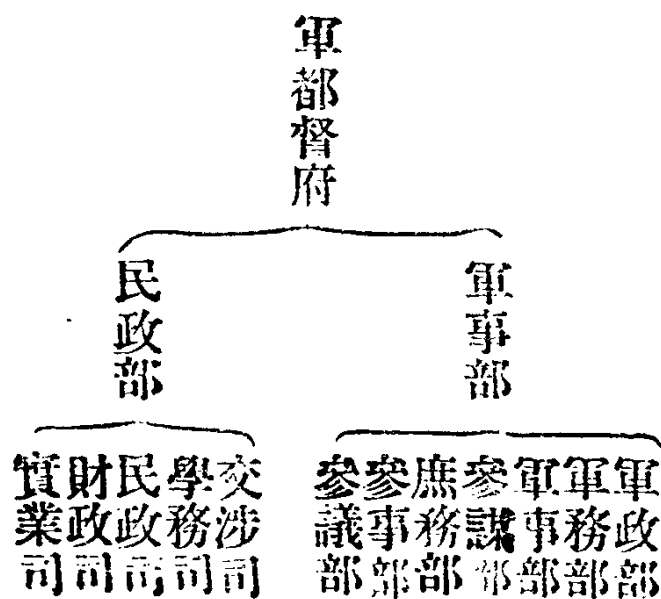 軍都督府
軍事部
民政部
軍政部
軍務部
軍事部
參謀部
庶務部
參事部
參議部
交涉司
學務司
民政司
財政司
實業司